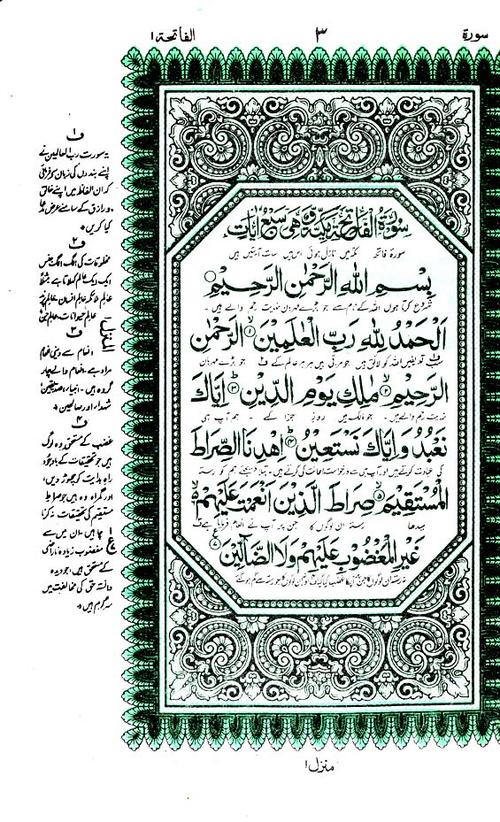 سورة ٣ الفاتحة ١
سورة الفاتحة مكية وهي سبع آيات
سورۃ فاتحہ مکہ میں نازل ہوئی اس میں سات آیتیں ہیں
بِسْمِ اللهِ الرَّحْمٰنِ الرَّحِيْمِ
شروع کرتا ہوں اللہ کے نام سے جو بڑے مہربان نہایت رحم والے ہیں
اَلْحَمْدُ لِلّٰهِ رَبِّ الْعٰلَمِيْنَ ۙ﴿۱﴾ الرَّحْمٰنِ
سب تعریفیں اللہ کو لائق ہیں جو مربی ہیں ہر ہر عالم کے جو بڑے مہربان
الرَّحِيْمِ ۙ﴿۲﴾ مٰلِكِ يَوْمِ الدِّيْنِ ؕ﴿۳﴾ اِيَّاكَ
نہایت رحم والے ہیں جو مالک ہیں روز جزا کے ہم آپ ہی
نَعْبُدُ وَاِيَّاكَ نَسْتَعِيْنُ ؕ﴿۴﴾ اِهْدِنَا الصِّرَاطَ
کی عبادت کرتے ہیں اور آپ ہی سے درخواست اعانت کی کرتے ہیں بتلا دیجئے ہم کو رستہ
الْمُسْتَقِيْمَ ۙ﴿۵﴾ صِرَاطَ الَّذِيْنَ اَنْعَمْتَ عَلَيْهِمْ
سیدھا رستہ ان لوگوں کا جن پر آپ نے انعام فرمایا ہے
غَيْرِ الْمَغْضُوْبِ عَلَيْهِمْ وَلَا الضَّآلِّيْنَ
یہ سورت رب العالمین نے
اپنے بندوں کی زبان کو فرمائی
کہ ان الفاظ میں اپنے خالق
و رازق کے سامنے عرض مدعا
کیا کریں
مخلوقات کی الگ الگ جنس
ایک ایک عالم کہلاتا ہے مثلاً
عالم ملائکہ عالم انسان
انعام سے دینی انعام
مراد ہے
گروہ ہیں۔ انبیاء، صدیقین
شہداء اور صالحین
غضب کے مستحق وہ لوگ
ہیں جو تحقیقات کے باوجود
راہ ہدایت کو چھوڑ دیں،
اور گمراہ وہ ہیں جو صراط
مستقیم کی تحقیقات نہ کرنا
ان میں سے
مغضوب زیادہ ناراضی
کے مستحق ہیں جو دیدہ
دانستہ حق کی مخالفت میں
سرگرم ہیں
المنزل
منزل ١